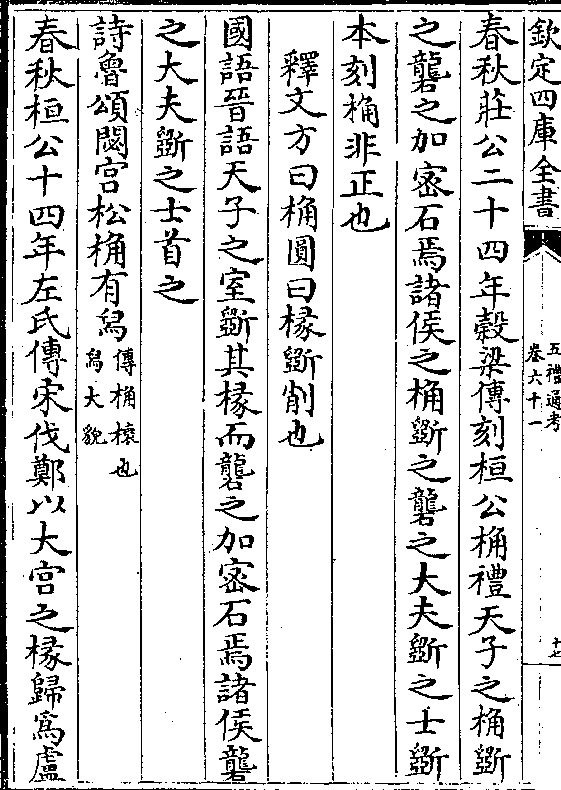 欽定四庫全書
五禮通考
卷六十一
十七
春秋莊公二十四年榖梁傳刻桓公桷禮天子之桷斲
之礱之加宻石焉諸侯之桷斲之礱之大夫斲之士斲
本刻桷非正也
釋文方曰桷圓曰椽斲削也
國語晉語天子之室斲其椽而礱之加宻石焉諸侯礱
之大夫斲之士首之
詩魯頌閟宫松桷有舄
傳桷榱也
舄大貌
春秋桓公十四年左氏傳宋伐鄭以大宫之椽歸為盧